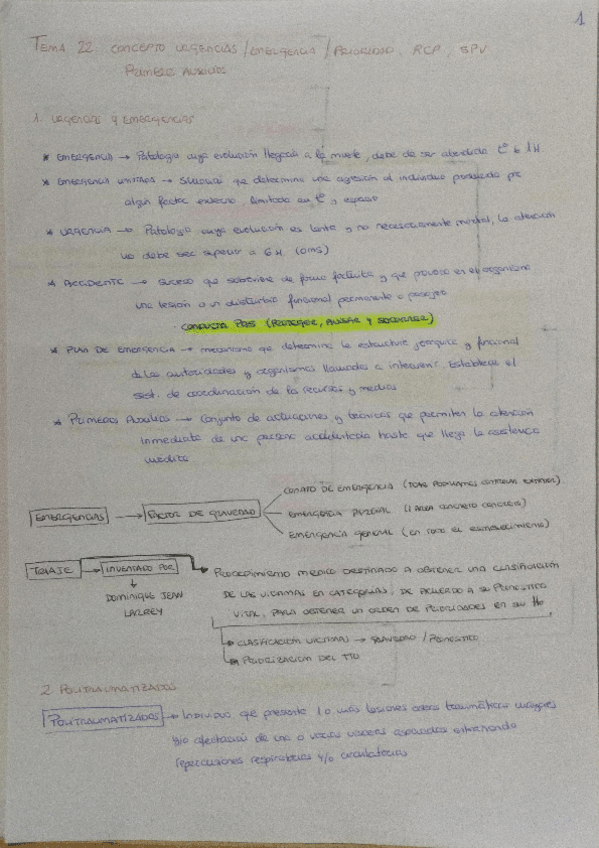 1
TEMA 22. CONCEPTO URGENCIAS/EMERGENCIA/PRIORIDAD. RCP. SPV.
PRIMEROS AUXILIOS
1. URGENCIAS Y EMERGENCIAS
* EMERGENCIA → Patología cuya evolución llegaría a la muerte, debe de ser atendida tº < 1H.
* EMERGENCIA LIMITADA → Situación que determina una agresión al individuo producida por
algún factor externo limitado en tº y espacio
* URGENCIA → Patología cuya evolución es lenta y no necesariamente mortal, la atención
no debe ser superior a 6H (OMS)
* ACCIDENTE → Suceso que sobreviene de forma fortuita y que provoca en el organismo
una lesión o un disturbio funcional permanente o pasajero
CONDUCTA PAS (PROTEGER, AVISAR Y SOCORRER)
* PLAN DE EMERGENCIA → mecanismo que determina la estructura jerárquica y funcional
de las autoridades y organismos llamados a intervenir. Establece el
sist. de coordinación de los recursos y medios
* PRIMEROS AUXILIOS → Conjunto de actuaciones y técnicas que permiten la atención
inmediata de una persona accidentada hasta que llega la asistencia
médica
CONATO DE EMERGENCIA (TODOS PODRÍAMOS CONTROLAR
EMERGENCIAS → FACTOR DE GRAVEDAD EMERGENCIA PARCIAL (1 ÁREA CONCRETA)
EMERGENCIA GENERAL (EN TODO EL ESTABLECIMIENTO)
TRIAJE → INVENTADO POR → PROCEDIMIENTO MEDICO DESTINADO A OBTENER UNA CLASIFICACIÓN
DOMINIQUE JEAN DE LAS VICTIMAS EN CATEGORÍAS, DE ACUERDO A SU PRONOSTICO
LARREY VITAL, PARA OBTENER UN ORDEN DE PRIORIDADES EN SU tto
→ CLASIFICACION VICTIMAS → GRAVEDAD / PRONOSTICO
→ PRIORIZACION DEL TTO
2. POLITRAUMATIZADOS
POLITRAUMATIZADOS → Individuo que presenta 1 o más lesiones óseas traumáticas mayores
y/o afectación de una o varias vísceras asociadas entrañando
repercusiones respiratorias y/o circulatorias